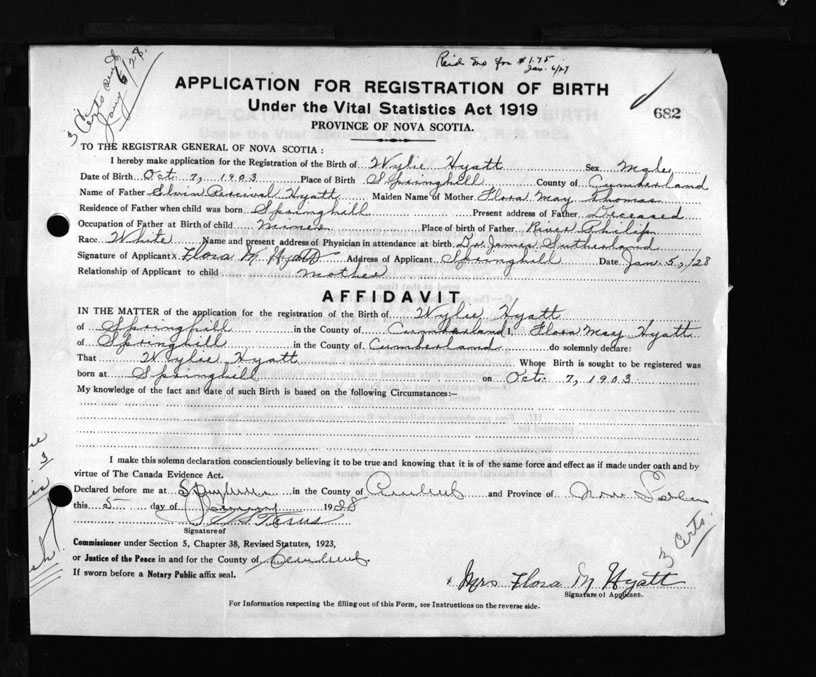 3 Certs
Jany 6/28.
Paid for $1.75
Jan. 6/27
APPLICATION FOR REGISTRATION OF BIRTH
Under the Vital Statistics Act 1919
PROVINCE OF NOVA SCOTIA.
682
TO THE REGISTRAR GENERAL OF NOVA SCOTIA :
I hereby make application for the Registration of the Birth of Wylie Hyatt Sex Male
Date of Birth Oct 7, 1903 Place of Birth Springhill County of Cumberland
Name of Father Elvin Percival Hyatt Maiden Name of Mother Flora May Thomas
Residence of Father when child was born Springhill Present address of Father Deceased
Occupation of Father at Birth of child Miner Place of birth of Father River Philip
Race White Name and present address of Physician in attendance at birth Dr. James Sutherland
Signature of Applicant x Flora M Hyatt Address of Applicant Springhill Date Jan. 5, /28
Relationship of Applicant to child mother
AFFIDAVIT
IN THE MATTER of the application for the registration of the Birth of Wylie Hyatt
of Springhill in the County of Cumberland I, Flora May Hyatt
of Springhill in the County of Cumberland do solemnly declare:
That Wylie Hyatt Whose Birth is sought to be registered was
born at Springhill on Oct. 7, 1903.
My knowledge of the fact and date of such Birth is based on the following Circumstances:—
I make this solemn declaration conscientiously believing it to be true and knowing that it is of the same force and effect as if made under oath and by
virtue of The Canada Evidence Act.
Declared before me at Springhill in the County of Cumberland and Province of Nova Scotia
this 5 day of January 1928
Signature of
Commissioner under Section 5, Chapter 38, Revised Statutes, 1923,
or Justice of the Peace in and for the County of Cumberland
If sworn before a Notary Public affix seal.
3 Certs.
x Mrs Flora M Hyatt
Signature of Applicant.
For Information respecting the filling out of this Form, see Instructions on the reverse side.